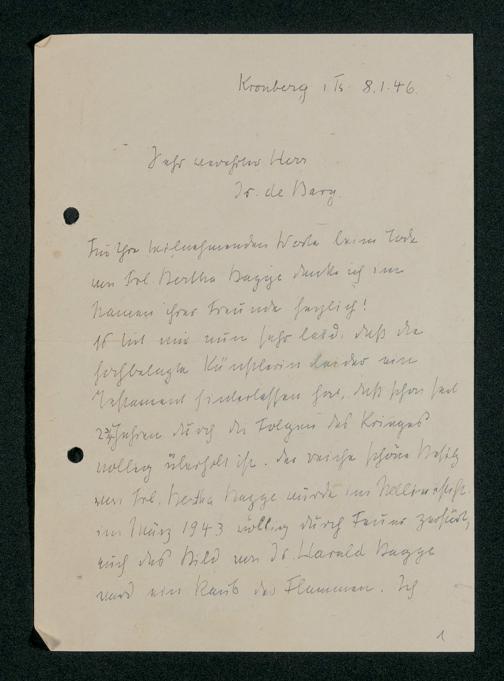 Kronberg i Ts. 8.1.46.
Sehr verehrter Herr
Dr. de Bary.
Für Ihre teilnehmenden Worte beim Tode
von Frl. Bertha Bagge danke ich im
Namen ihrer Freunde herzlich!
Es tut mir nun sehr leid, daß die
hochbetagte Künstlerin leider ein
Testament hinterlassen hat, daß schon seit
2¾ Jahren durch die Folgen des Krieges
völlig überholt ist. Der reiche schöne Besitz
von Frl. Bertha Bagge wurde im
im März 1943 völlig durch Feuer zerstört,
auch das Bild von Dr. Harald Bagge
ward ein Raub der Flammen. Ich
1